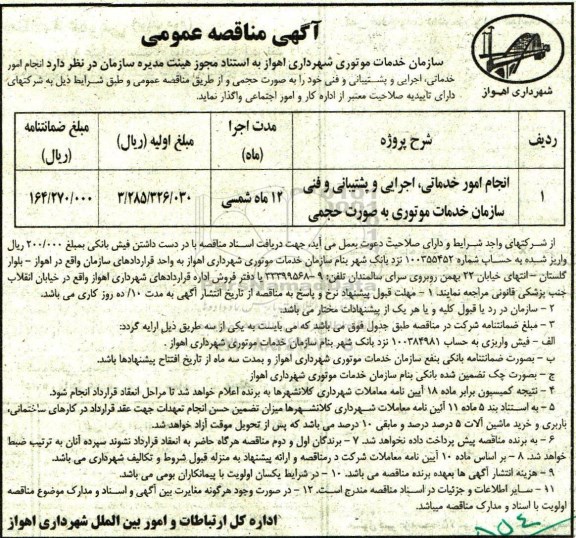 آگهی مناقصه عمومی
شهرداری اهواز
سازمان خدمات موتوری شهرداری اهواز به استناد مجوز هیئت مدیره سازمان در نظر دارد انجام امور
خدماتی، اجرایی و پشتیبانی و فنی خود را به صورت حجمی و از طریق مناقصه عمومی و طبق شرایط ذیل به شرکتهای
دارای تاییدیه صلاحیت معتبر از اداره کار و امور اجتماعی واگذار نماید.
ردیف شرح پروژه مدت اجرا (ماه) مبلغ اولیه (ریال) مبلغ ضمانتنامه (ریال)
۱ انجام امور خدماتی، اجرایی و پشتیبانی و فنی سازمان خدمات موتوری به صورت حجمی ۱۲ ماه شمسی ۳/۲۸۵/۳۲۶/۰۳۰ ۱۶۴/۲۷۰/۰۰۰
از شرکتهای واجد شرایط و دارای صلاحیت دعوت بعمل می آید، جهت دریافت اسناد مناقصه با در دست داشتن فیش بانکی بمبلغ ۲۰۰/۰۰۰ ریال
واریز شده به حساب شماره ۱۰۰۳۵۵۴۵۲ نزد بانک شهر بنام سازمان خدمات موتوری شهرداری اهواز به واحد قراردادهای سازمان واقع در اهواز – بلوار
گلستان – انتهای خیابان ۲۲ بهمن روبروی سرای سالمندان تلفن: ۹ -۳۳۳۹۹۵۶۸ یا دفتر فروش اداره قراردادهای شهرداری اهواز واقع در خیابان انقلاب
جنب پزشکی قانونی مراجعه نمایند. ۱ – مهلت قبول پیشنهاد نرخ و پاسخ به مناقصه از تاریخ انتشار آگهی به مدت ۱۰/ ده روز کاری می باشد.
۲ – سازمان در رد یا قبول کلیه و یا هر یک از پیشنهادات مختار می باشد.
۳ – مبلغ ضمانتنامه شرکت در مناقصه طبق جدول فوق می باشد که می بایست به یکی از سه طریق ذیل ارایه گردد:
الف – فیش واریزی به حساب ۱۰۰۳۸۴۹۸۱ نزد بانک شهر بنام سازمان خدمات موتوری شهرداری اهواز .
ب – بصورت ضمانتنامه بانکی بنفع سازمان خدمات موتوری شهرداری اهواز و بمدت سه ماه از تاریخ افتتاح پیشنهادها باشد.
ج – بصورت چک تضمین شده بانکی بنام سازمان خدمات موتوری شهرداری اهواز
۴ – نتیجه کمیسیون برابر ماده ۱۸ آیین نامه معاملات شهرداری کلانشهرها به برنده اعلام خواهد شد تا مراحل انعقاد قرارداد انجام شود.
۵ – به استناد بند ۵ ماده ۱۱ آئین نامه معاملات شهرداری کلانشهرها میزان تضمین حسن انجام تعهدات جهت عقد قرارداد در کارهای ساختمانی،
باربری و خرید ماشین آلات ۵ درصد درصد و مابقی ۱۰ درصد می باشد که پس از تحویل موقت آزاد خواهد شد.
۶ – به برنده مناقصه پیش پرداخت داده نخواهد شد. ۷ – برندگان اول و دوم مناقصه هرگاه حاضر به انعقاد قرارداد نشوند سپرده آنان به ترتیب ضبط
خواهد شد. ۸ – بر اساس ماده ۱۰ آیین نامه معاملات شرکت در مناقصه و ارائه پیشنهاد به منزله قبول شروط و تکالیف شهرداری می باشد.
۹ – هزینه انتشار آگهی ها بعهده برنده مناقصه می باشد. ۱۰ – در شرایط یکسان اولویت با پیمانکاران بومی می باشد.
۱۱ – سایر اطلاعات و جزئیات در اسناد مناقصه مندرج است. ۱۲ – در صورت وجود هرگونه مغایرت بین آگهی و اسناد و مدارک موضوع مناقصه
اولویت با اسناد و مدارک مناقصه میباشد.
اداره کل ارتباطات و امور بین الملل شهرداری اهواز